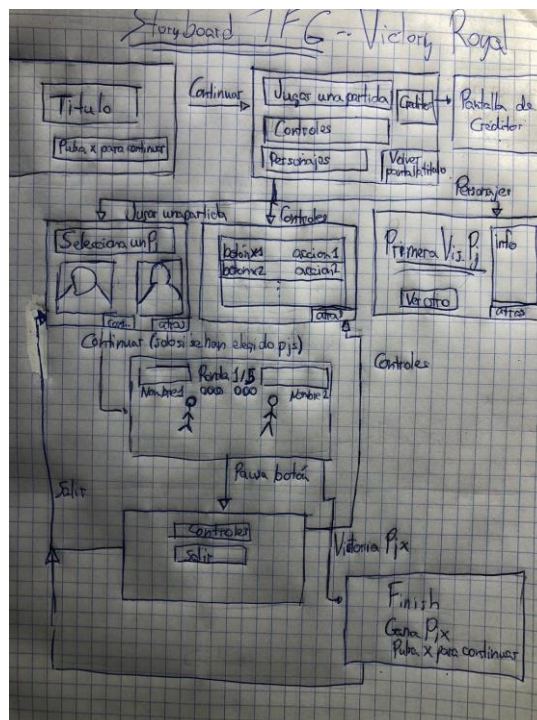 Storyboard TFG - Victory Royal
Titulo
Pulsa x para continuar
Continuar
Jugar una partida
Controles
Personajes
Creditos
Volver
pantalla titulo
Pantalla de
Créditos
Personajes
Jugar una partida
Selecciona un Pj
Cont.
atras
Controles
boton x1 accion 1
boton x2 accion 2
:
atras
Primera Vis. Pj
Ver otro
info
atras
Continuar (solo si se han elegido pjs)
Controles
Ronda 1/5
Nombre 1
Nombre 2
Pausa botón
Salir
Controles
Salir
Victoria Pjx
Finish
Gana Pjx
Pulsa x para continuar